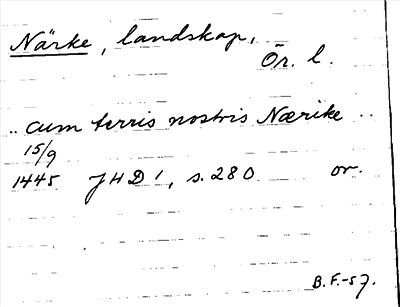 Närke, landskap,
Ör. l.
.. cum terris nostris Nærike ..
15/9
1445 JHD 1, s. 280 or.
B. F.-57.